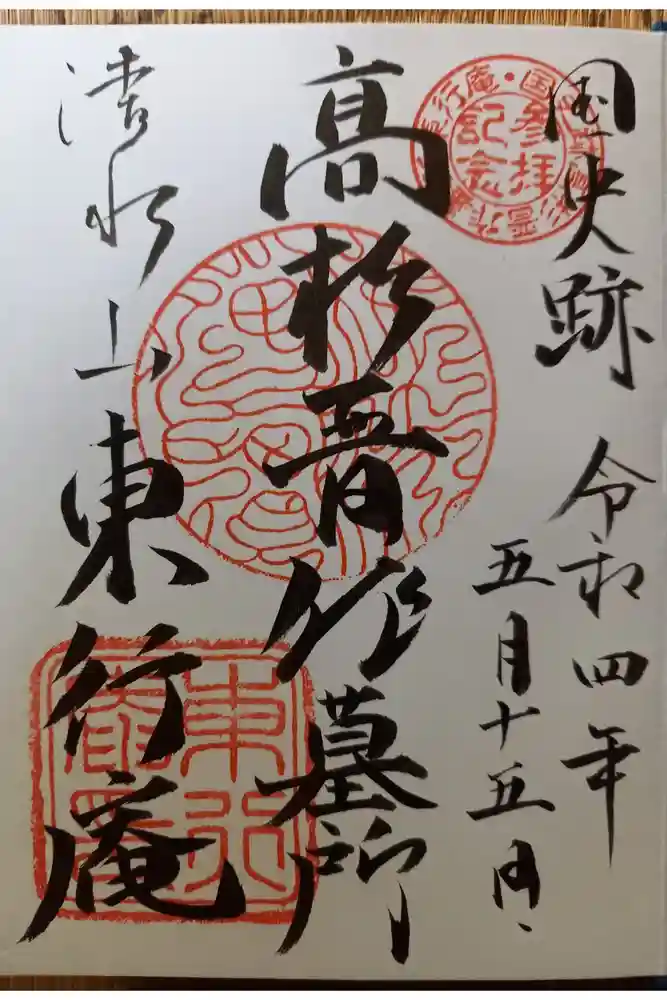 国史跡
令和四年
五月十五日
高杉晋作墓所
清水山 東行庵
参拝
記念
東行
庵